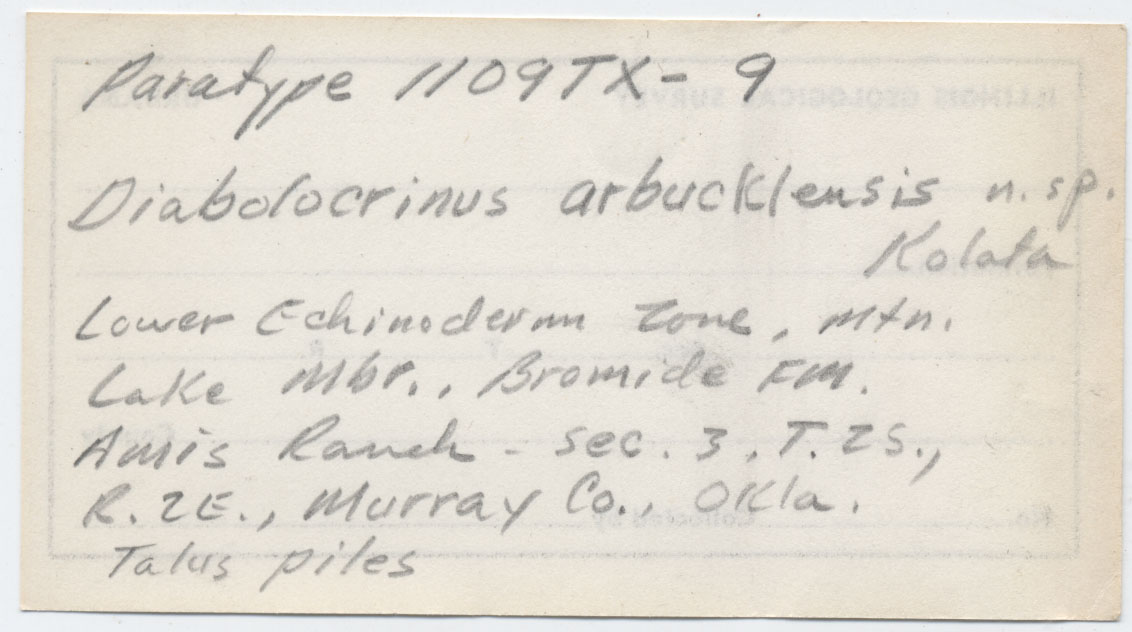 Paratype 1109TX-9
Diabolocrinus arbucklensis n.sp.
Kolata
Lower Echinoderm Zone, Mtn.
Lake Mbr., Bromide FM.
Amis Ranch - sec. 3, T. 2S.,
R. 2E., Murray Co., Okla.
Talus piles